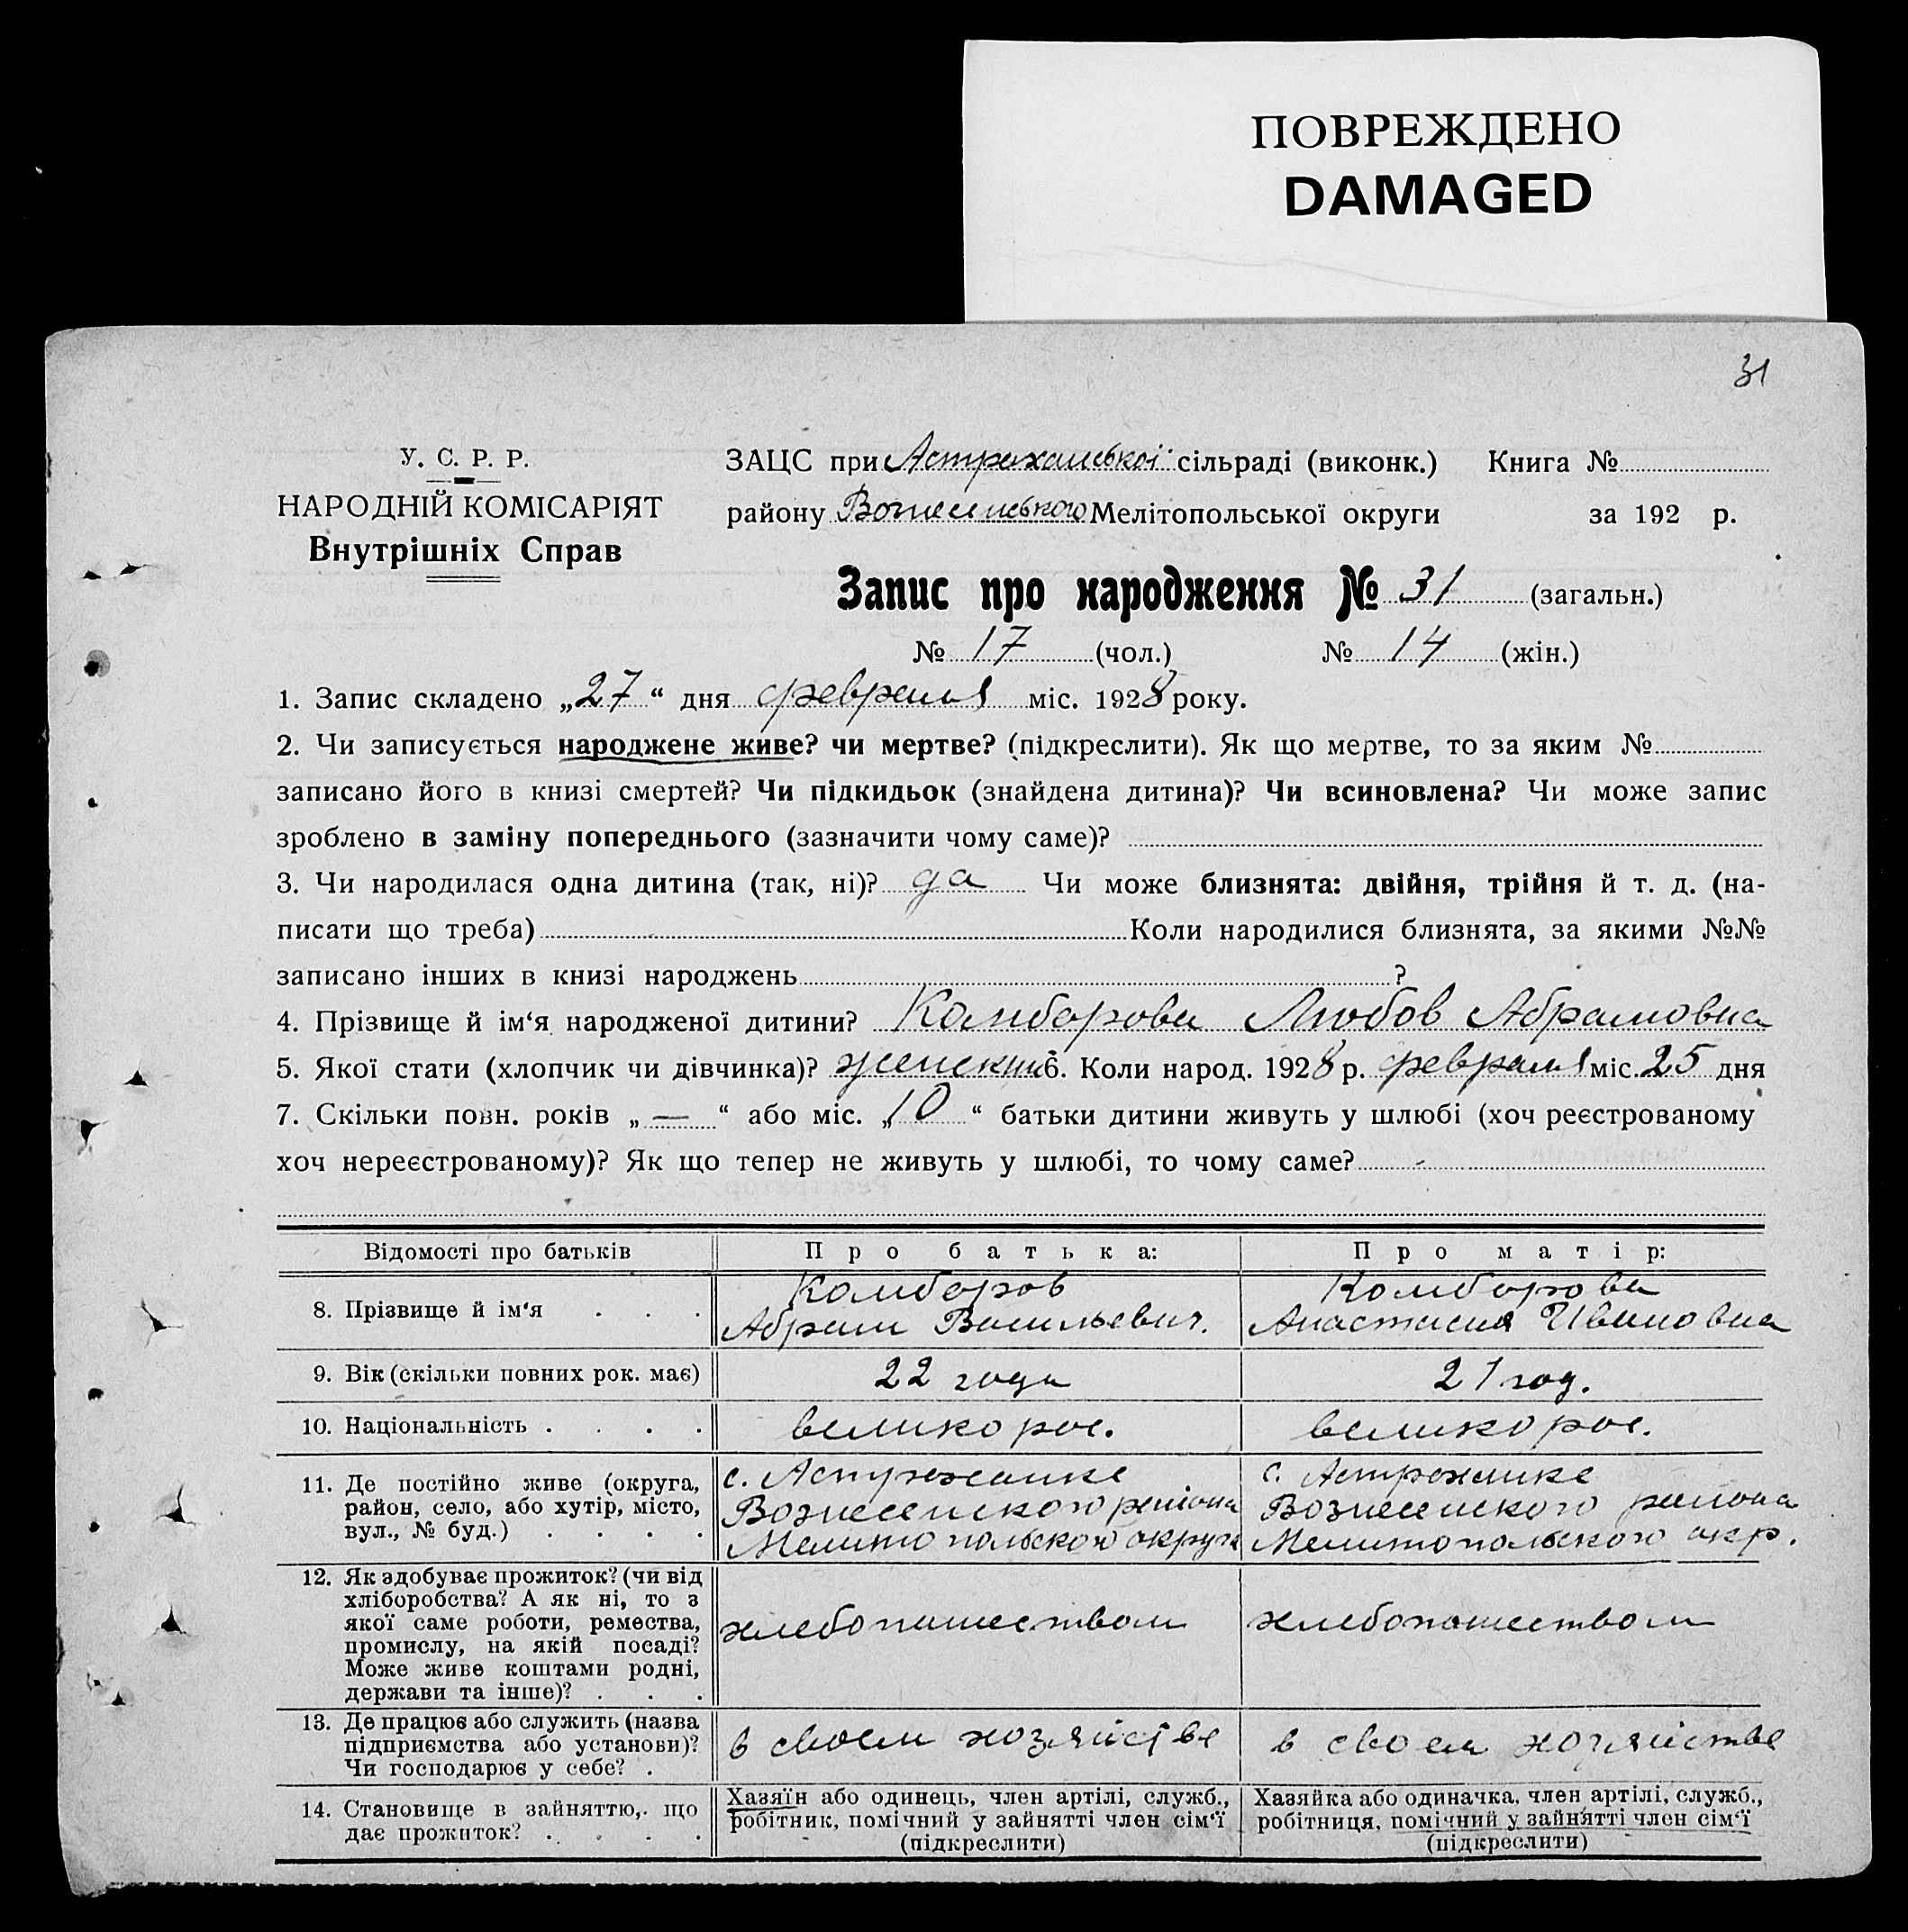 ПОВРЕЖДЕНО
DAMAGED
31
У. С. Р. Р.
НАРОДНІЙ КОМІСАРІЯТ
Внутрішніх Справ
ЗАЦС при Астраханської сільраді (виконк.) Книга №
району Вознесенського Мелітопольської округи за 192 р.
Запис про народження № 31 (загальн.)
№ 17 (чол.) № 14 (жін.)
1. Запис складено „27“ дня февраля міс. 1928 року.
2. Чи записується народжене живе? чи мертве? (підкреслити). Як що мертве, то за яким №
записано його в книзі смертей? Чи підкидьок (знайдена дитина)? Чи всиновлена? Чи може запис
зроблено в заміну попереднього (зазначити чому саме)?
3. Чи народилася одна дитина (так, ні)? да Чи може близнята: двійня, трійня й т. д. (на-
писати що треба) Коли народилися близнята, за якими №№
записано інших в книзі народжень ?
4. Прізвище й ім‘я народженої дитини? Камборова Любов Абрамовна
5. Якої стати (хлопчик чи дівчинка)? женский 6. Коли народ. 1928 р. февраля міс. 25 дня
7. Скільки повн. років „ — “ або міс. „10“ батьки дитини живуть у шлюбі (хоч реєстрованому
хоч нереєстрованому)? Як що тепер не живуть у шлюбі, то чому саме?
Відомості про батьків Про батька: Про матір:
8. Прізвище й ім‘я . . . Камборов Камборова
Абрам Васильевич. Анастасия Ивановна
9. Вік (скільки повних рок. має) 22 года 21 год.
10. Національність . . . . великорос. великорос.
11. Де постійно живе (округа, с. Астраханке с. Астраханке
район, село, або хутір, місто, Вознесенского района Вознесенского района
вул., № буд.) . . . . Мелитопольского округа Мелитопольского окр.
12. Як здобуває прожиток? (чи від
хліборобства? А як ні, то з
якої саме роботи, ремества, хлебопашеством хлебопашеством
промислу, на якій посаді?
Може живе коштами родні,
держави та інше)? . . .
13. Де працює або служить (назва
підприємства або установи)? в своем хозяйстве в своем хозяйстве
Чи господарює у себе? .
14. Становище в зайняттю, що Хазяїн або одинець, член артілі, служб., Хазяйка або одиначка, член артілі, служб.,
дає прожиток? . . . . робітник, помічний у зайнятті член сім‘ї робітниця, помічний у зайнятті член сім‘ї
(підкреслити) (підкреслити)